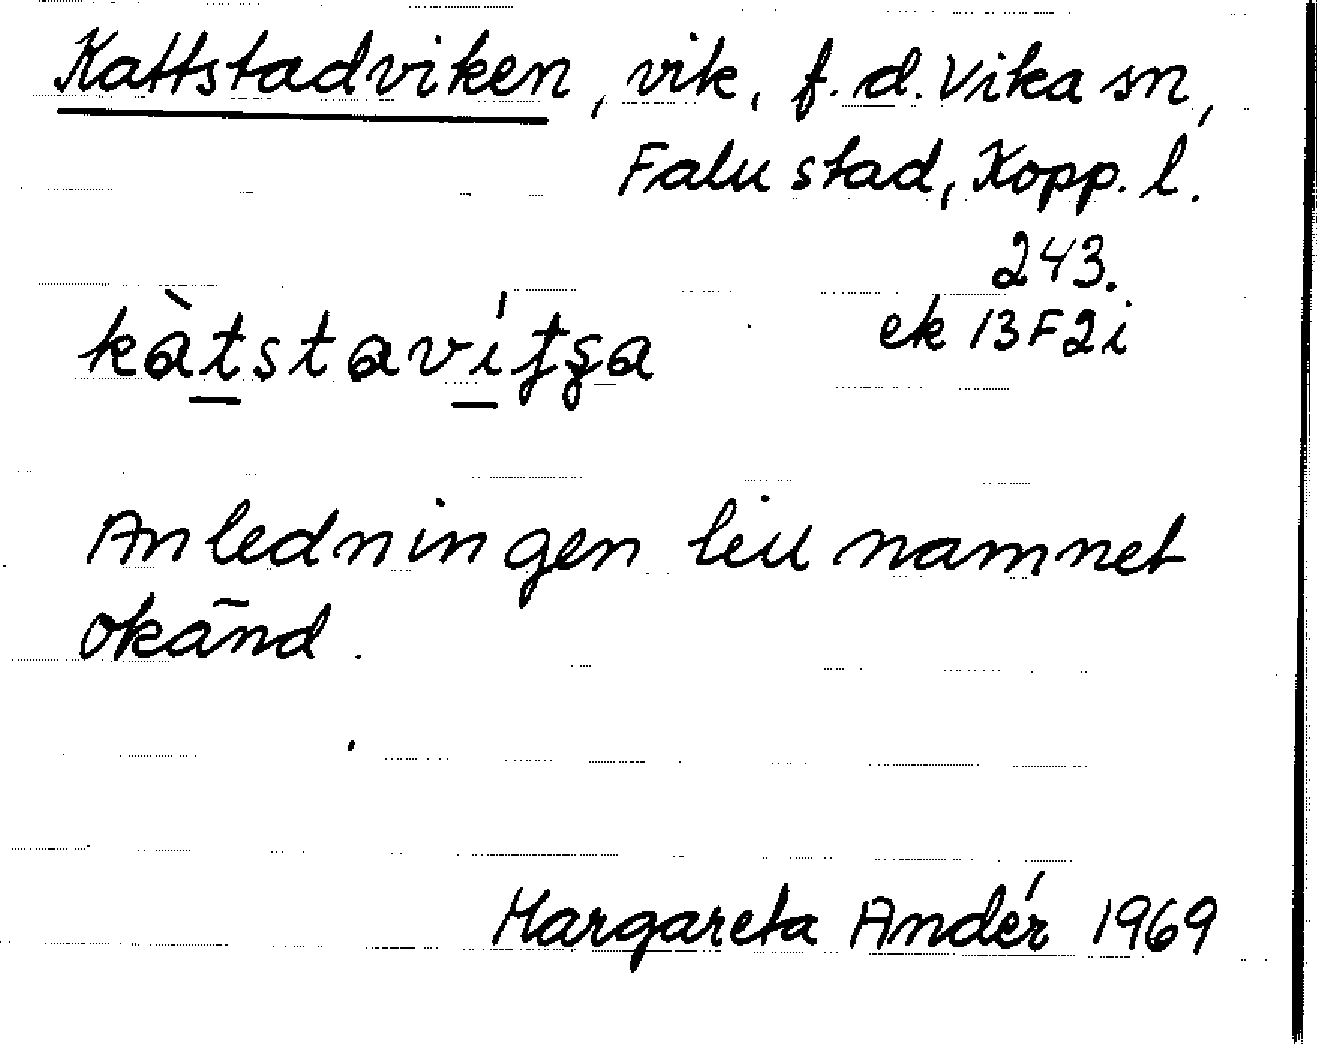 Kattstadviken, vik, f.d. Vika sn,
Falu stad, Kopp. l.
243.
ek 13F2i
kàtstavítʂa
Anledningen till namnet
okänd.
Margareta Andér 1969